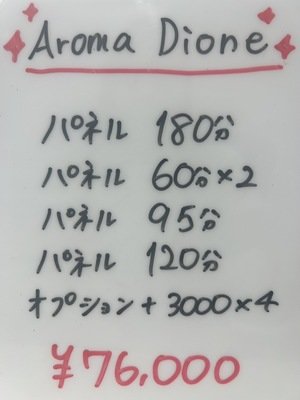 Aroma Dione
パネル 180分
パネル 60分×2
パネル 95分
パネル 120分
オプション+3000×4
¥76,000